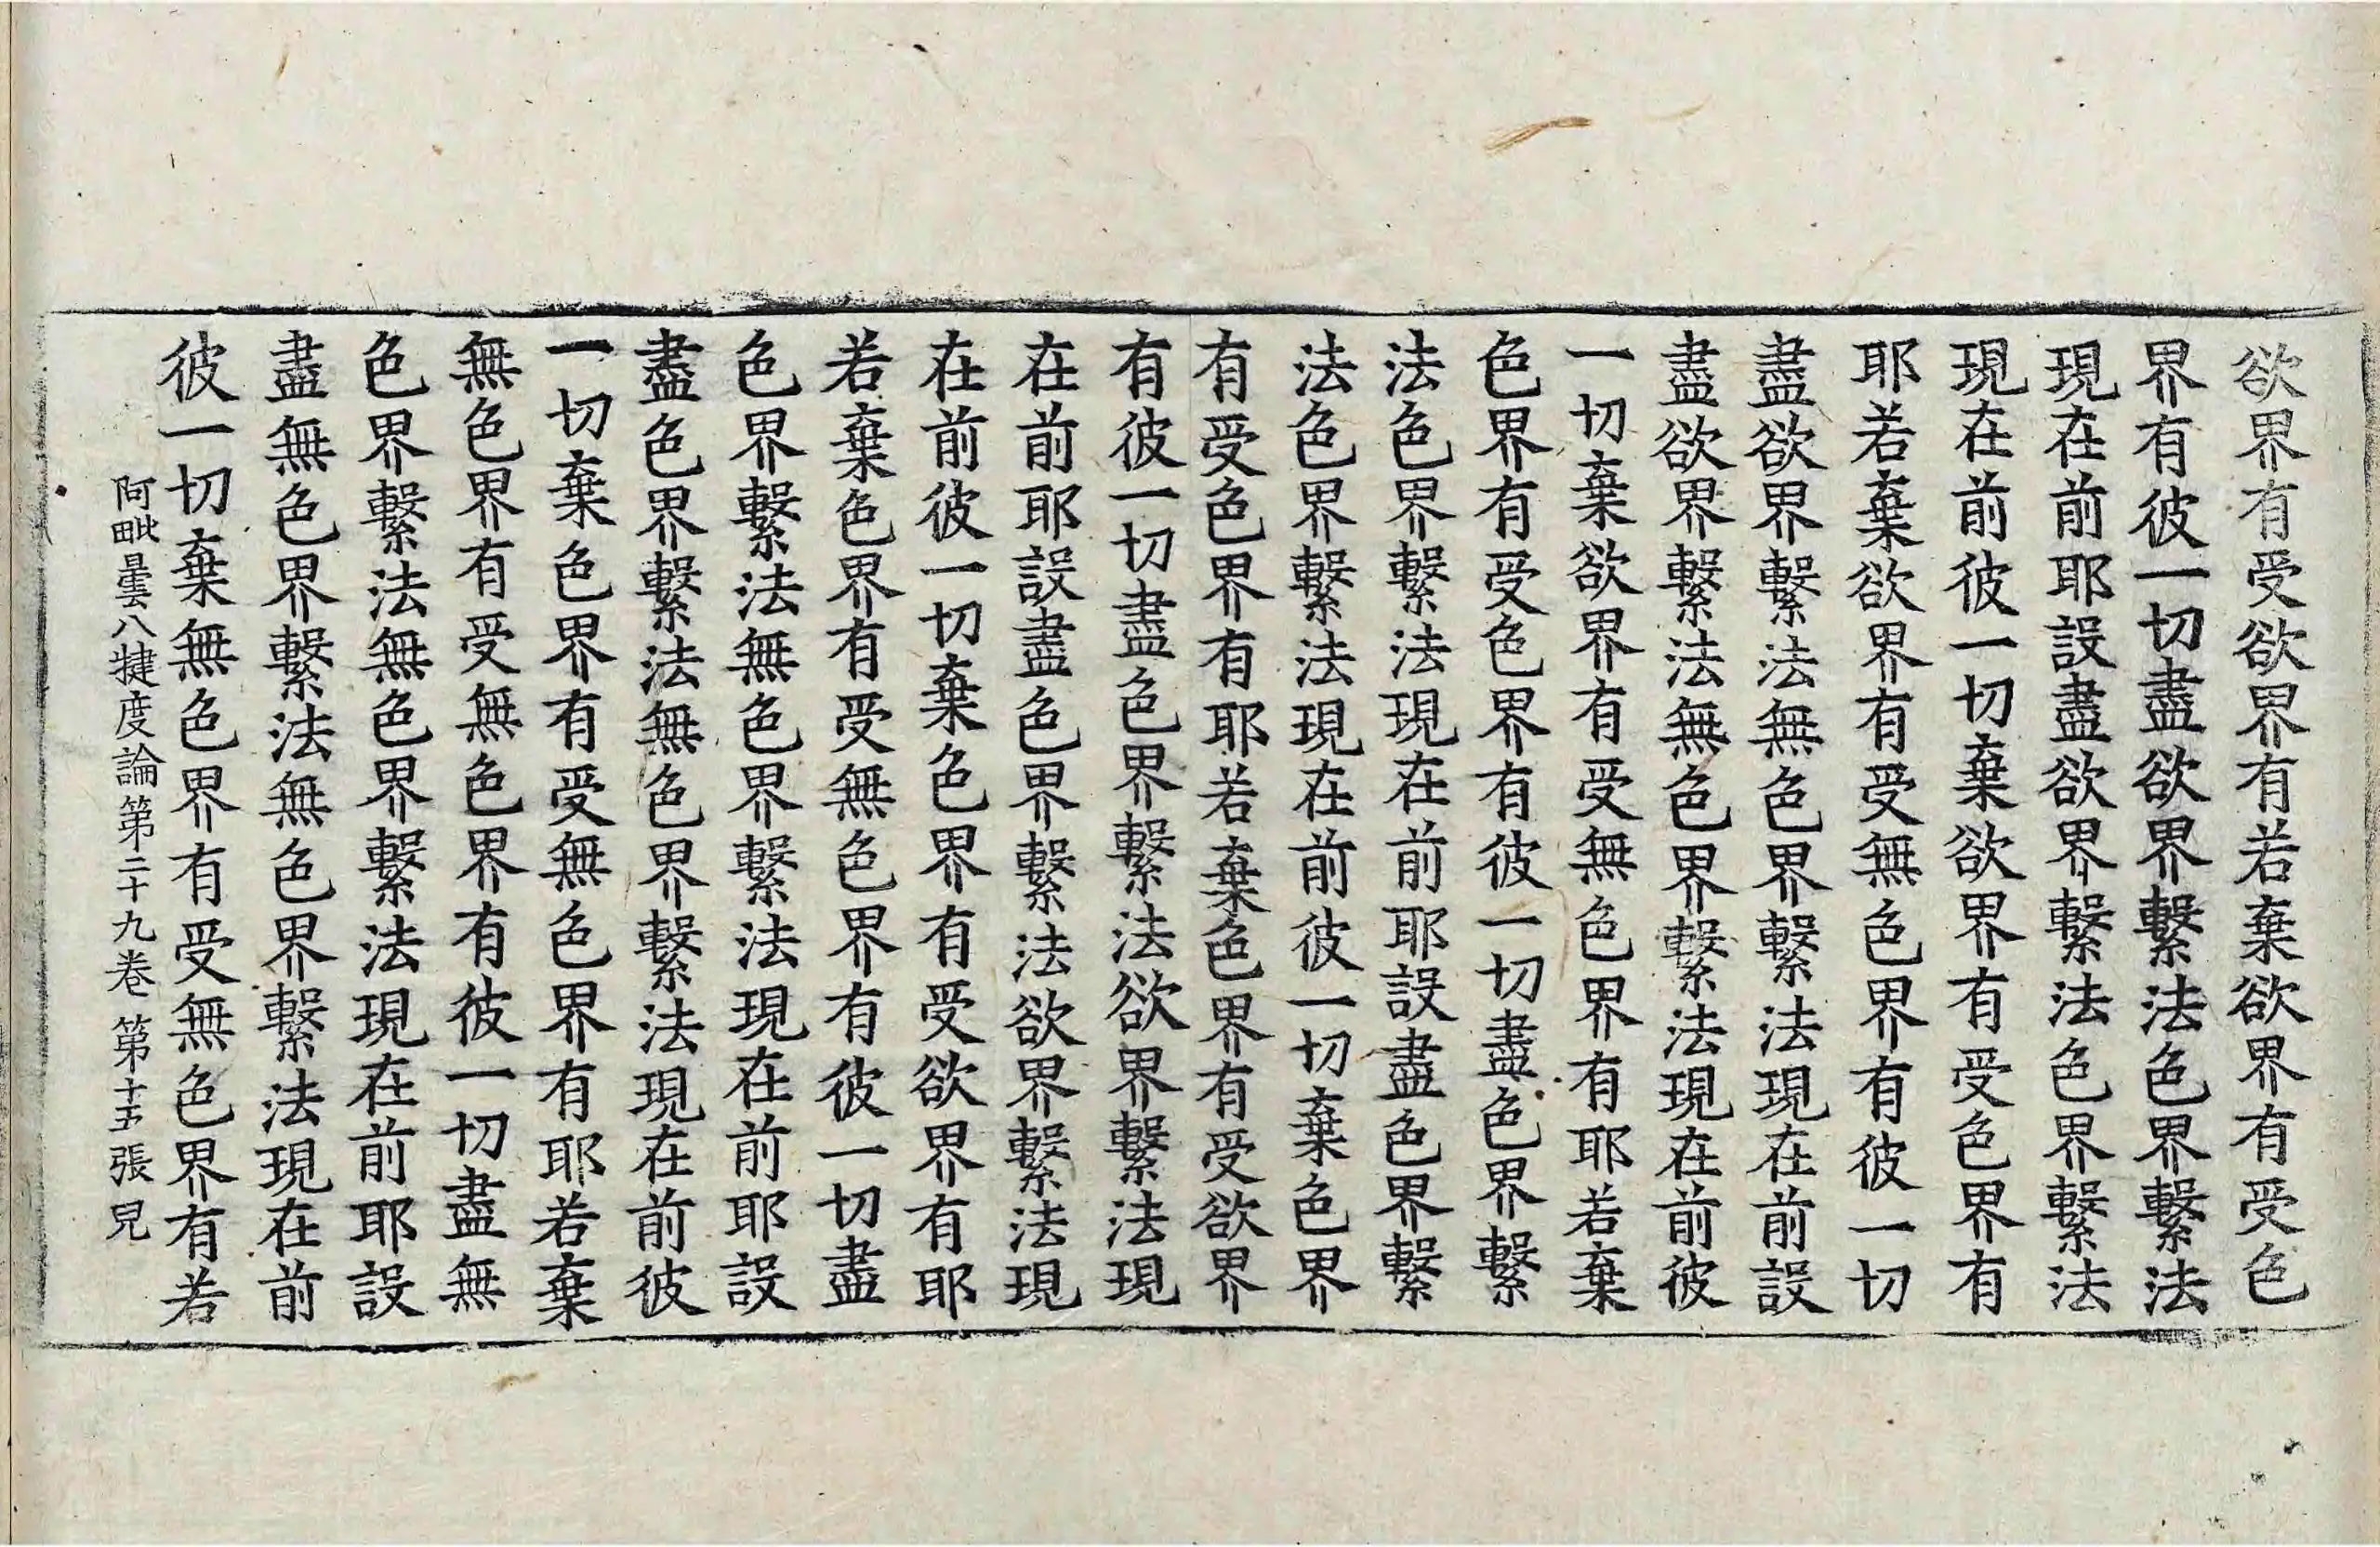 欲界有受欲界有若棄欲界有受色
界有彼一切盡欲界繫法色界繫法
現在前耶設盡欲界繫法色界繫法
現在前彼一切棄欲界有受色界有
耶若棄欲界有受無色界有彼一切
盡欲界繫法無色界繫法現在前設
盡欲界繫法無色界繫法現在前彼
一切棄欲界有受無色界有耶若棄
色界有受色界有彼一切盡色界繫
法色界繫法現在前耶設盡色界繫
法色界繫法現在前彼一切棄色界
有受色界有耶若棄色界有受欲界
有彼一切盡色界繫法欲界繫法現
在前耶設盡色界繫法欲界繫法現
在前彼一切棄色界有受欲界有耶
若棄色界有受無色界有彼一切盡
色界繫法無色界繫法現在前耶設
盡色界繫法無色界繫法現在前彼
一切棄色界有受無色界有耶若棄
無色界有受無色界有彼一切盡無
色界繫法無色界繫法現在前耶設
盡無色界繫法無色界繫法現在前
彼一切棄無色界有受無色界有若
阿毗曇八犍度論第二十九卷 第十五張 皃